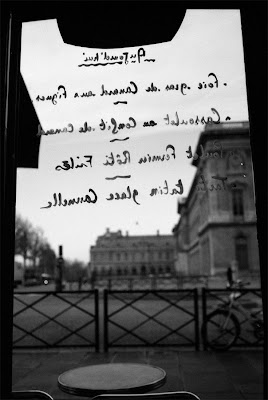 Aujourd'hui
- Foie gras de Canard aux Figues
- Cassoulet au Confit de Canard
Poulet Fermier Rôti Frites
Tatin glace Cannelle